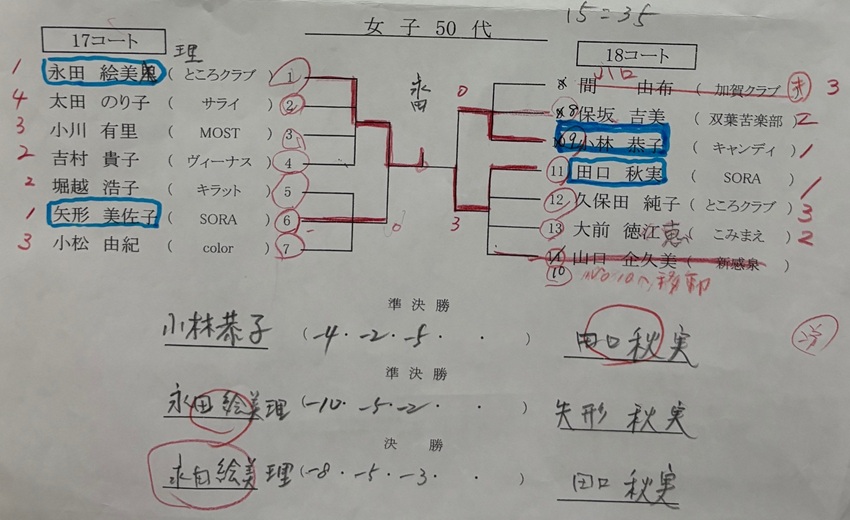 15=35
女子50代
17コート
18コート
理
1 永田 絵美 ( ところクラブ ) 1
4 太田 のり子 ( サライ ) 2
3 小川 有里 ( MOST ) 3
2 吉村 貴子 ( ヴィーナス ) 4
2 堀越 浩子 ( キラット ) 5
1 矢形 美佐子 ( SORA ) 6
3 小松 由紀 ( color ) 7
永田
1
0
0
3
8 間 由布 ( 加賀クラブ ) 3
8 保坂 吉美 ( 双葉苦楽部 ) 2
9 小林 恭子 ( キャンディ ) 1
11 田口 秋実 ( SORA ) 1
12 久保田 純子 ( ところクラブ ) 3
13 大前 徳江 恵 ( こみまえ ) 2
14 山口 企久美 ( 新感泉 )
10
準決勝
小林恭子 ( -4 ・ -2 ・ -5 ・ ・ ) 田口 秋実
準決勝
永田絵美理 ( -10 ・ -5 ・ -2 ・ ・ ) 矢形 秋実
決勝
永田絵美理 ( -8 ・ -5 ・ -3 ・ ・ ) 田口 秋実